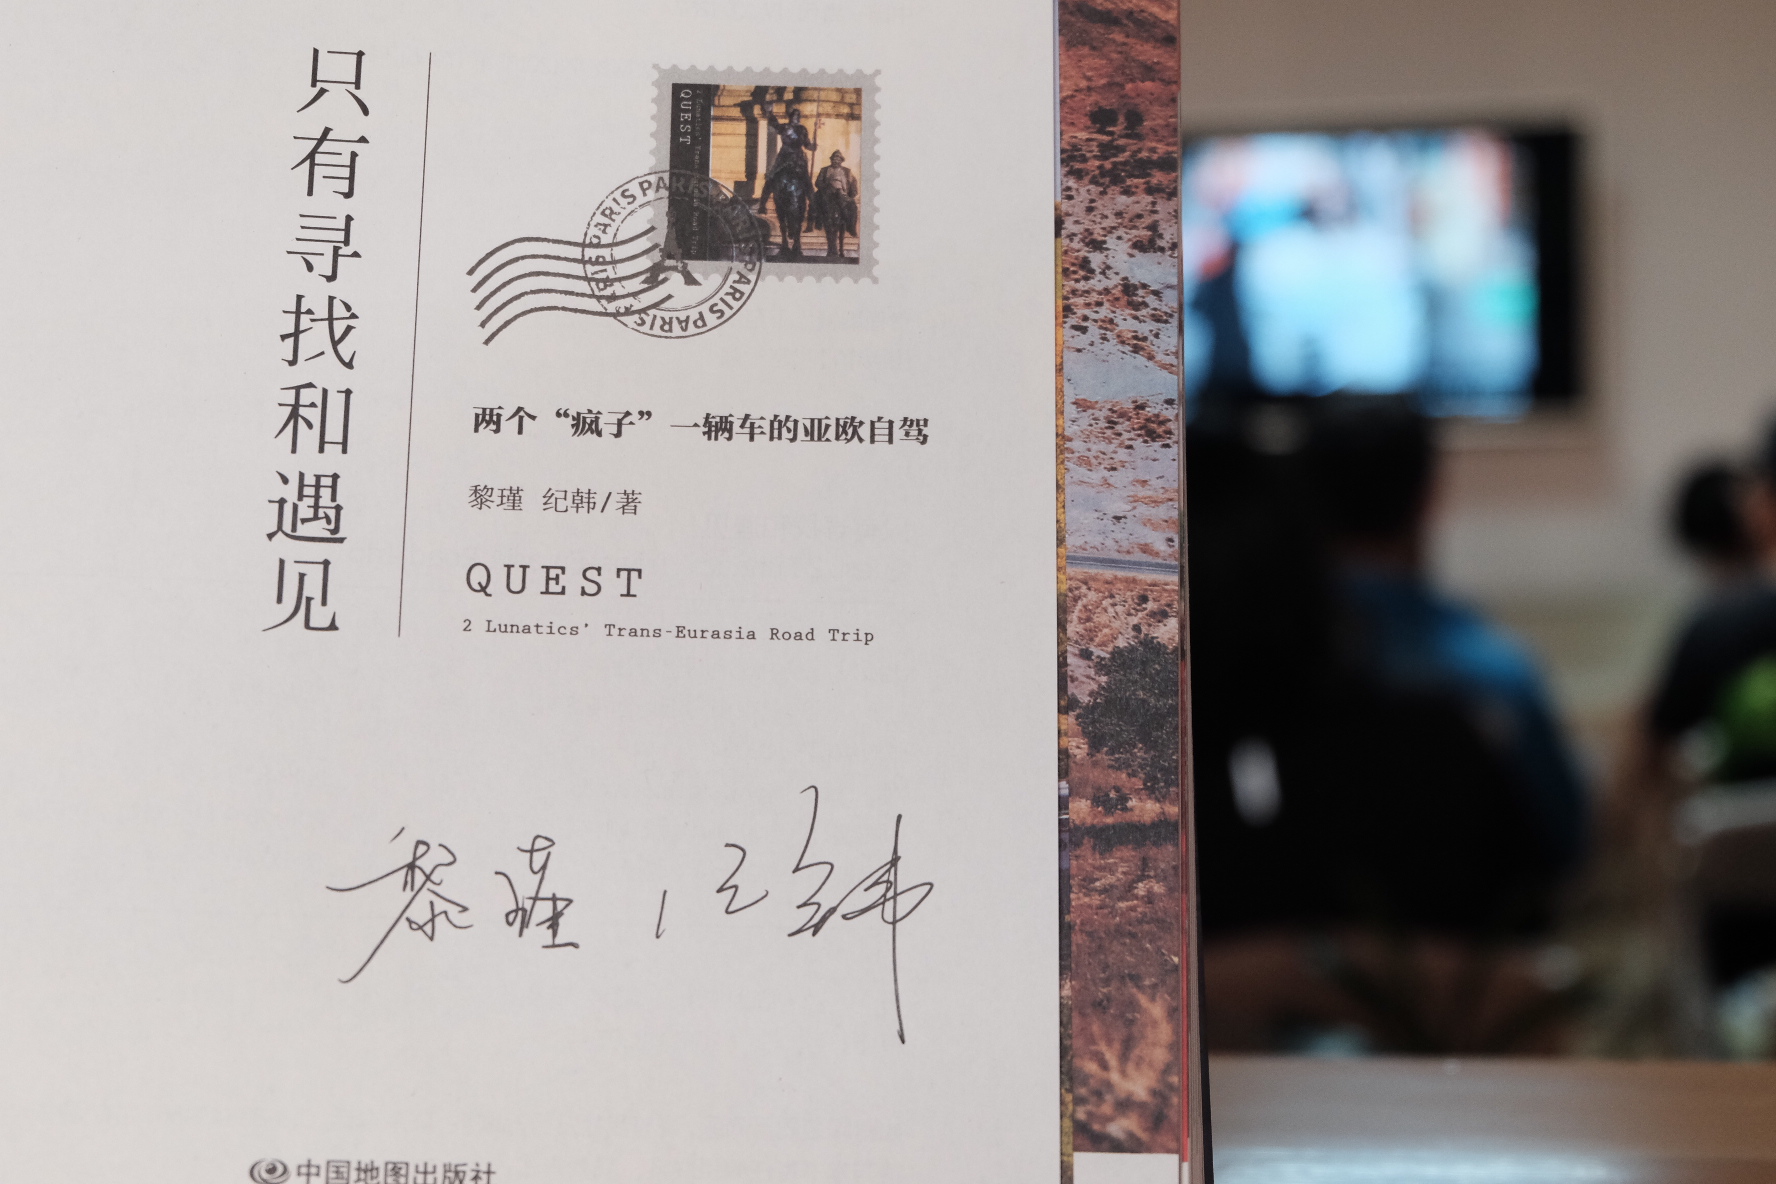 只有寻找和遇见
QUEST
PARIS PARIS PARIS PARIS PARIS
两个“疯子”一辆车的亚欧自驾
黎瑾 纪韩/著
QUEST
2 Lunatics' Trans-Eurasia Road Trip
黎瑾
中国地图出版社